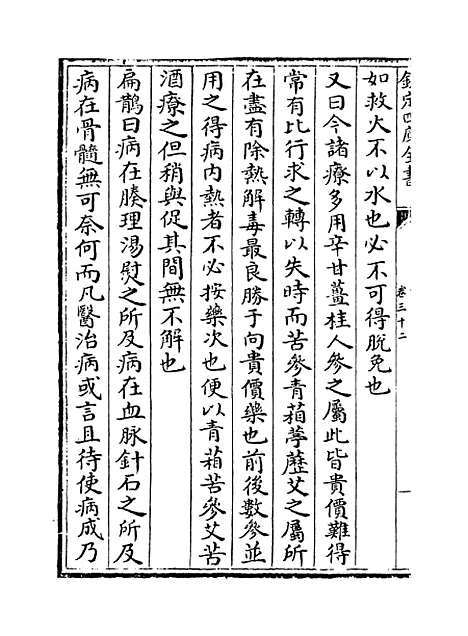 欽定四庫全書
卷三十二
如救火不以水也必不可得脫免也
又曰今諸療多用辛甘薑桂人參之屬此皆貴價難得
常有比行求之轉以失時而苦參青葙葶藶艾之屬所
在盡有除熱解毒最良勝于向貴價藥也前後數參並
用之得病內熱者不必按藥次也便以青葙苦參艾苦
酒療之但稍與促其間無不解也
扁鵲曰病在腠理湯熨之所及病在血脉針石之所及
病在骨髓無可奈何而凡醫治病或言且待使病成乃